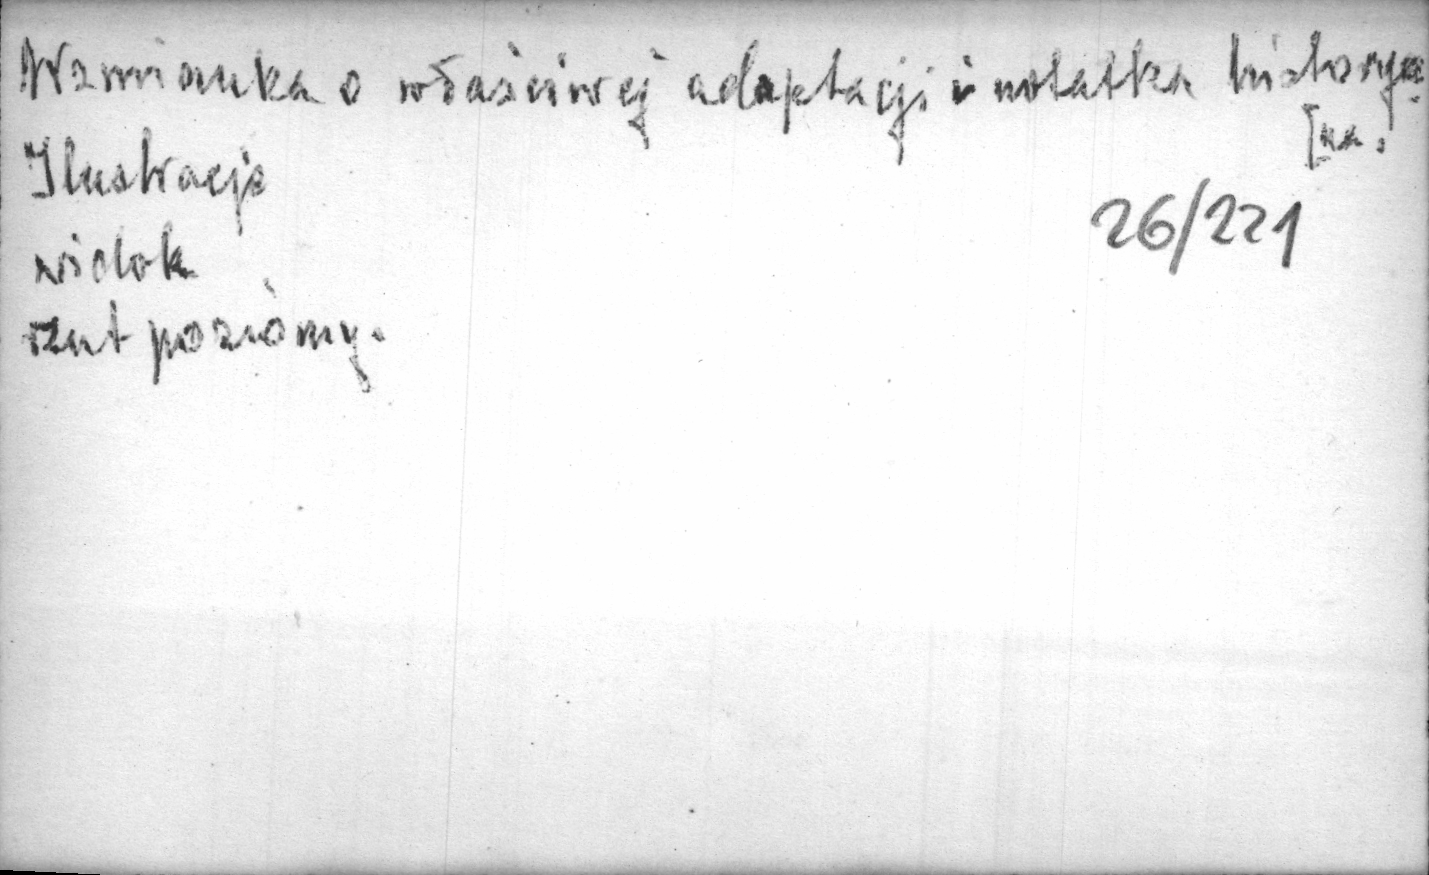 Wzmianka o właściwej adaptacji i notatka historycz
[na.
Ilustracje
widok
rzut poziomy.
26/221